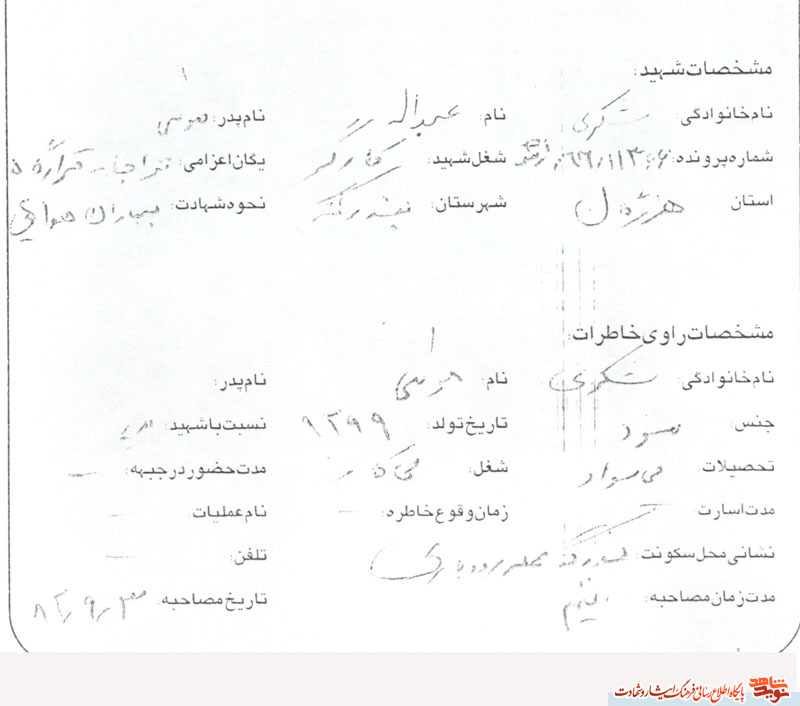 مشخصات شهید:
نام خانوادگی: شکری نام: عبداله نام پدر: موسی
شماره پرونده: شغل شهید: کارگر یگان اعزامی:
استان هرمزگان شهرستان: بندرلنگه نحوه شهادت: بمباران هوائی
مشخصات راوی خاطرات:
نام خانوادگی: شکری نام: نام پدر:
جنس: تاریخ تولد: ۱۲۹۹ نسبت با شهید: پدر
تحصیلات: بی سواد شغل: بی کار مدت حضور در جبهه: —
مدت اسارت — زمان و قوع خاطره: — نام عملیات: —
نشانی محل سکونت: بندرلنگه محله تلفن: —
مدت زمان مصاحبه: تاریخ مصاحبه: ۸۲/۹/۳
نوید شاهد پایگاه اطلاع رسانی فرهنگ ایثار و شهادت